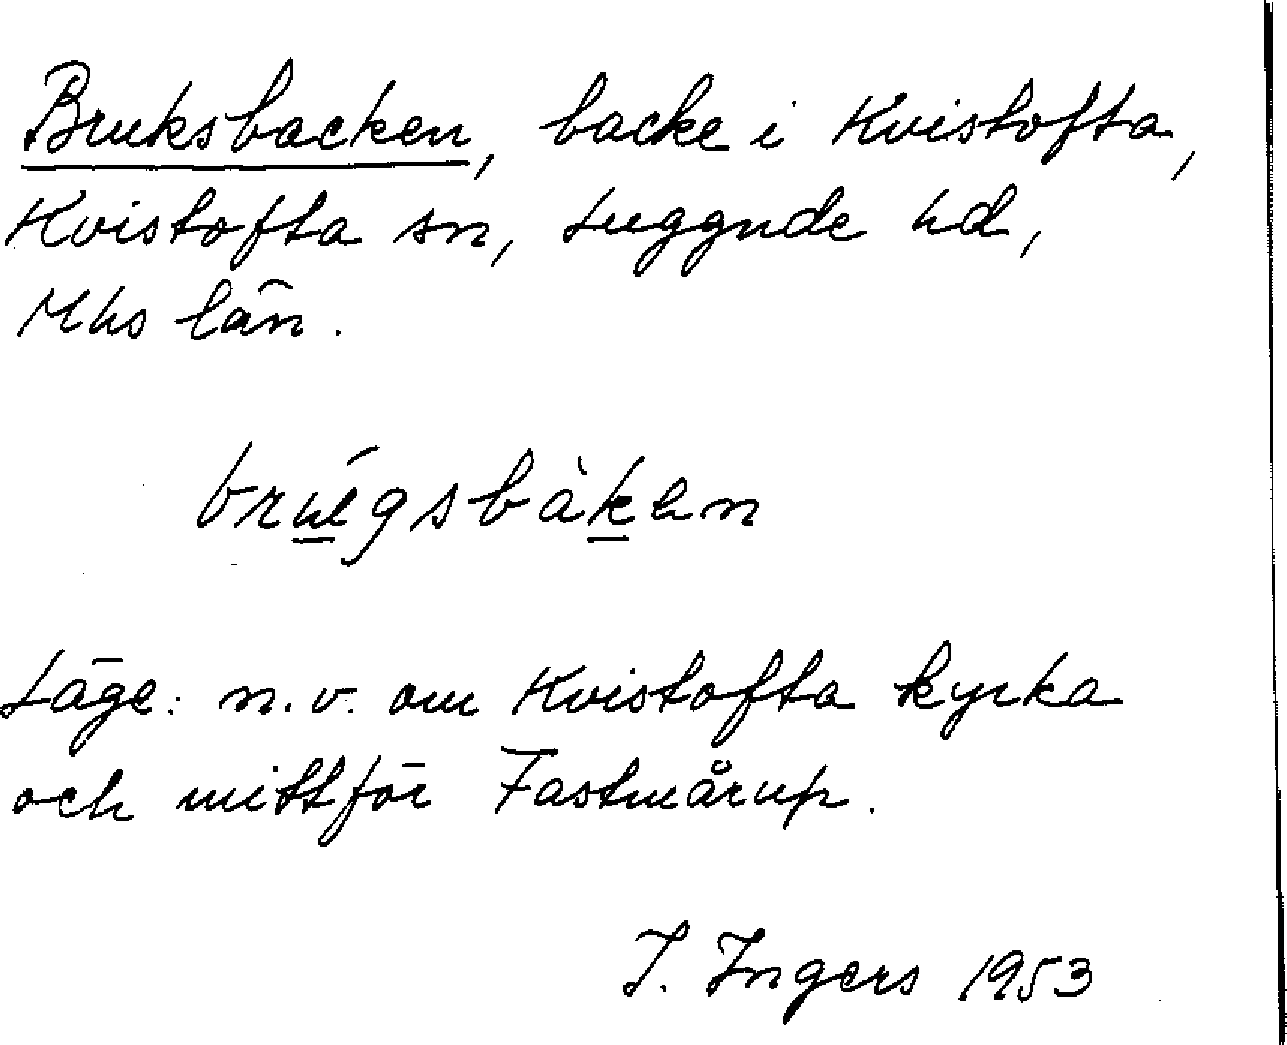 Bruksbacken, backe i Kvistofta,
Kvistofta sn, Luggude hd,
Mhs län.
bruégsbàken
Läge: n.v. om Kvistofta kyrka
och mittför Fastmårup.
I. Ingers 1953